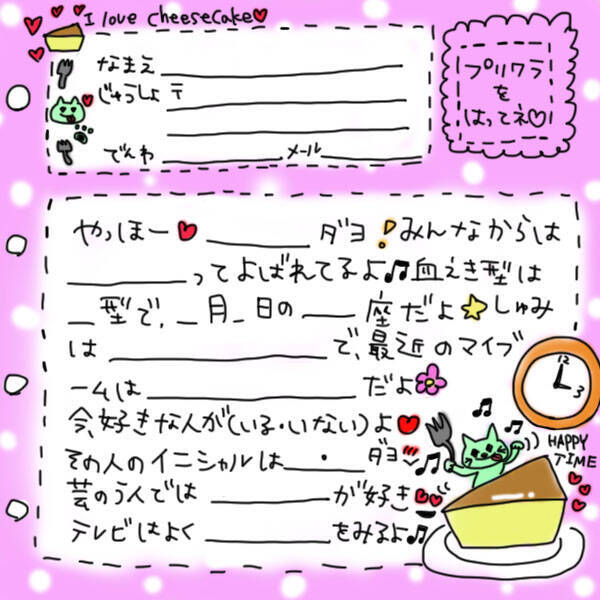 I love cheesecake♥
なまえ
じゅうしょ 〒
でんわ メール
プリクラ
を
はってネ♡
やっほー♥ ダヨ！みんなからは
ってよばれてるよ♫血えき型は
型で、 月 日の 座だよ☆しゅみ
は で、最近のマイブ
ームは だよ
今、好きな人が(いる・いない)よ♥
その人のイニシャルは ・ ダヨ♫
芸のう人では が好き
テレビはよく をみるよ♫
12
3
HAPPY
TIME